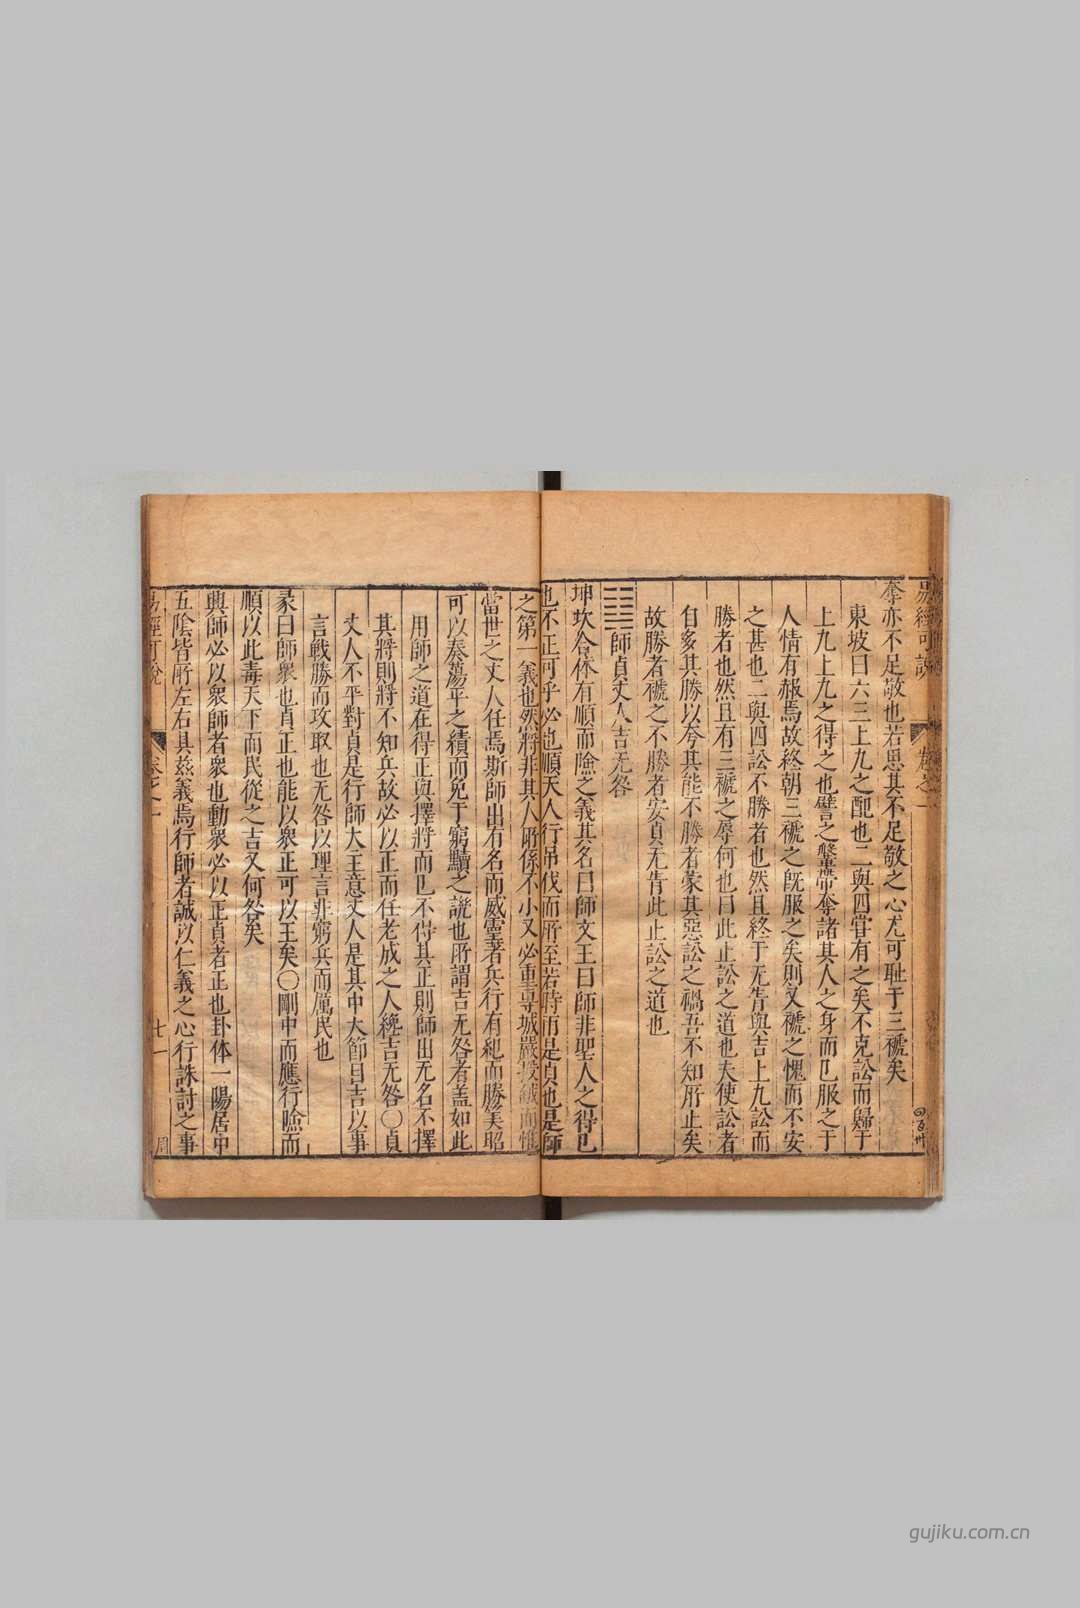 易經可說
卷之一
四百卅
奪亦不足敬也若思其不足敬之心尤可耻于三褫矣
東坡曰六三上九之配也二與四甞有之矣不克訟而歸于
上九上九之得之也譬之鞶帶奪諸其人之身而已服之于
人情有赧焉故終朝三褫之旣服之矣則又褫之愧而不安
之甚也二與四訟不勝者也然且終于无眚與吉上九訟而
勝者也然且有三褫之辱何也曰此止訟之道也夫使訟者
自多其勝以夸其能不勝者蒙其惡訟之禍吾不知所止矣
故勝者褫之不勝者安貞无眚此止訟之道也
師貞丈人吉无咎
坤坎合体有順而險之義其名曰師文王曰師非聖人之得已
也不正可乎必也順天人行吊伐而所至若時雨是貞也是師
之第一義也然將非其人所係不小又必重專城嚴設
當世之丈人任焉斯師出有名而威靈著兵行有紀而勝筭昭
可以奏蕩平之績而免于窮黷之譏也所謂吉无咎者盖如此
用師之道在得正與擇將而已不得其正則師出无名不擇
其將則將不知兵故必以正而任老成之人纔吉无咎〇貞
丈人不平對貞是行師大主意丈人是其中大節目吉以事
言戰勝而攻取也无咎以理言非窮兵而厲民也
彖曰師衆也貞正也能以衆正可以王矣〇剛中而應行險而
順以此毒天下而民從之吉又何咎矣
興師必以衆師者衆也動衆必以正貞者正也卦体一陽居中
五陰皆所左右具玆義焉行師者誠以仁義之心行誅討之事
易經可說
卷之一
七一
周
gujiku.com.cn